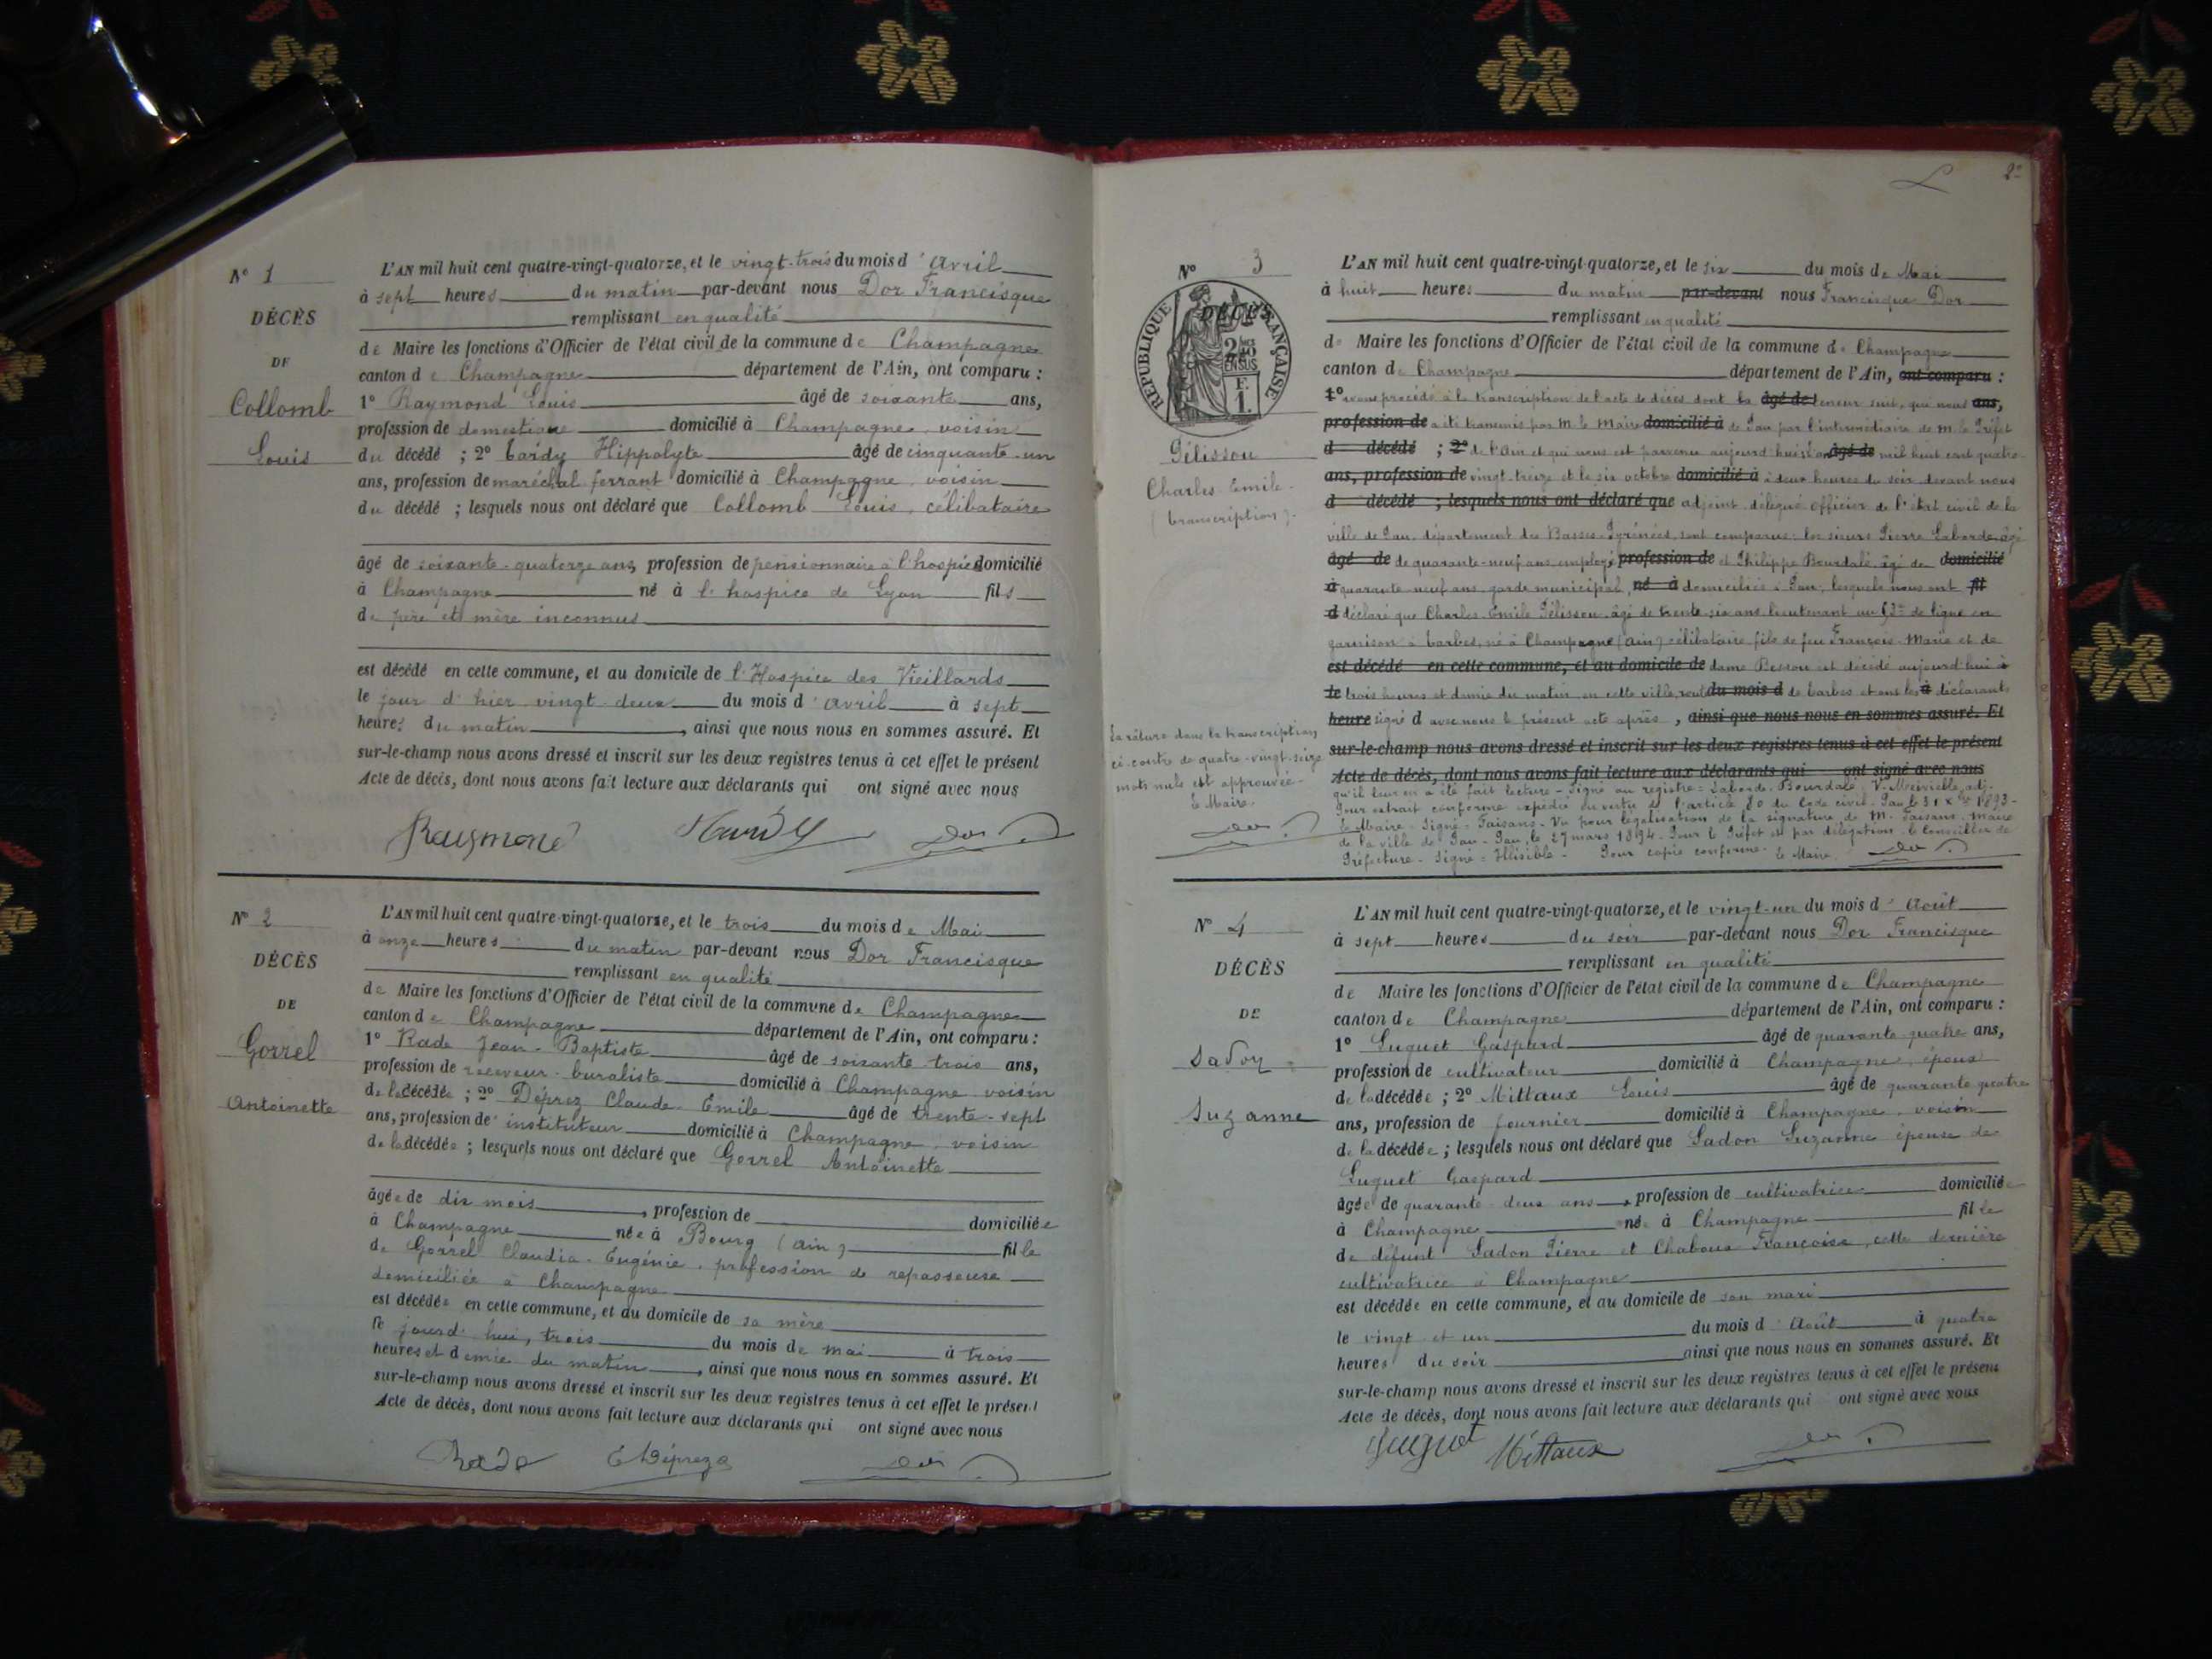 N° 1
DÉCÈS
DE
Collomb
Louis
L'AN mil huit cent quatre-vingt-quatorze, et le vingt-trois du mois d'avril
à sept heures du matin par-devant nous Dor Francisque
remplissant en qualité
de Maire les fonctions d'Officier de l'état civil de la commune de Champagne
canton de Champagne département de l'Ain, ont comparu :
1° Raymond Louis âgé de soixante ans,
profession de domestique domicilié à Champagne, voisin
du décédé ; 2° Tardy Hippolyte âgé de cinquante-un
ans, profession de maréchal ferrant domicilié à Champagne, voisin
du décédé ; lesquels nous ont déclaré que Collomb Louis, célibataire
âgé de soixante-quatorze ans, profession de pensionnaire à l'hospice domicilié
à Champagne né à l'hospice de Lyon fils
de père et mère inconnus
est décédé en cette commune, et au domicile de l'Hospice des Vieillards
le jour d'hier vingt-deux du mois d'avril à sept
heures du matin, ainsi que nous nous en sommes assuré. Et
sur-le-champ nous avons dressé et inscrit sur les deux registres tenus à cet effet le présent
Acte de décès, dont nous avons fait lecture aux déclarants qui ont signé avec nous
Raymond Tardy Dor
N° 2
DÉCÈS
DE
Gorrel
Antoinette
L'AN mil huit cent quatre-vingt-quatorze, et le trois du mois de Mai
à onze heures du matin par-devant nous Dor Francisque
remplissant en qualité
de Maire les fonctions d'Officier de l'état civil de la commune de Champagne
canton de Champagne département de l'Ain, ont comparu :
1° Rade Jean-Baptiste âgé de soixante-trois ans,
profession de receveur-buraliste domicilié à Champagne voisin
de la décédée ; 2° Déprez Claude-Émile âgé de trente-sept
ans, profession de instituteur domicilié à Champagne, voisin
de la décédée ; lesquels nous ont déclaré que Gorrel Antoinette
âgée de dix mois, profession de domiciliée
à Champagne née à Bourg (Ain) fille
de Gorrel Claudia-Eugénie, profession de repasseuse
domiciliée à Champagne
est décédée en cette commune, et au domicile de sa mère
le jourd'hui, trois du mois de mai à trois
heures et demie du matin, ainsi que nous nous en sommes assuré. Et
sur-le-champ nous avons dressé et inscrit sur les deux registres tenus à cet effet le présent
Acte de décès, dont nous avons fait lecture aux déclarants qui ont signé avec nous
Rade E Déprez Dor
2e
N° 3
DÉCÈS
RÉPUBLIQUE FRANÇAISE
EN SUS
F.
1.
Gélisson
Charles-Emile
(transcription).
L'AN mil huit cent quatre-vingt-quatorze, et le six du mois de Mai
à huit heures du matin par-devant nous Francisque Dor
remplissant en qualité
de Maire les fonctions d'Officier de l'état civil de la commune de Champagne
canton de Champagne département de l'Ain, ont comparu :
1° avons procédé à la transcription de l'acte de décès dont la âgé de teneur suit, qui nous ans,
profession de a été transmis par M. le Maire domicilié à de Pau par l'intermédiaire de M. le Préfet
d décédé ; 2° de l'Ain et qui nous est parvenu aujourd'hui : L'an âgé de mil huit cent quatre-
ans, profession de vingt-treize et le six octobre domicilié à à deux heures du soir devant nous
d décédé ; lesquels nous ont déclaré que adjoint délégué officier de l'état civil de la
ville de Pau, département des Basses-Pyrénées, sont comparus les sieurs Pierre Laborde, âgé
âgé de de quarante-neuf ans, employé profession de et Philippe Bourdalé âgé de domicilié
à quarante-neuf ans, garde municipal, né à domiciliés à Pau, lesquels nous ont fil
d déclaré que Charles-Emile Gélisson, âgé de trente-six ans, lieutenant au de ligne en
garnison à Tarbes, né à Champagne (Ain) célibataire fils de feu François-Marie et de
est décédé en cette commune, et au domicile de dame Besson est décédé aujourd'hui à
le trois heures et demie du matin en cette ville, route du mois d de Tarbes et ont les à déclarants
heure signé d avec nous le présent acte après , ainsi que nous nous en sommes assuré. Et
sur-le-champ nous avons dressé et inscrit sur les deux registres tenus à cet effet le présent
Acte de décès, dont nous avons fait lecture aux déclarants qui ont signé avec nous
qu'il leur en a été fait lecture - Signé au registre = Laborde. Bourdalé, adj.
Pour extrait conforme expédié en vertu de l'article 80 du Code civil. Pau le 31 Xbre 1893-
Le Maire - Signé = Faisans. Vu pour légalisation de la signature de M. Faisans, Maire
de la ville de Pau - Pau, le 27 mars 1894. Pour le Préfet et par délégation, le Conseiller de
Préfecture - Signé = Illisible - Pour copie conforme. Le Maire. Dor
La râture dans la transcription
ci-contre de quatre-vingt-seize
mots nuls est approuvée
Le Maire.
Dor
N° 4
DÉCÈS
DE
Sadon
Suzanne
L'AN mil huit cent quatre-vingt-quatorze, et le vingt-un du mois d'Août
à sept heures du soir par-devant nous Dor Francisque
remplissant en qualité
de Maire les fonctions d'Officier de l'état civil de la commune de Champagne
canton de Champagne département de l'Ain, ont comparu :
1° Luguet Gaspard âgé de quarante-quatre ans,
profession de cultivateur domicilié à Champagne, époux
de la décédée ; 2° Mittaux Louis âgé de quarante quatre
ans, profession de fournier domicilié à Champagne, voisin
de la décédée ; lesquels nous ont déclaré que Sadon Suzanne épouse de
Luguet Gaspard
âgée de quarante-deux ans, profession de cultivatrice domiciliée
à Champagne née à Champagne fille
de défunt Sadon Pierre et Chaboux Françoise, cette dernière
cultivatrice à Champagne
est décédée en cette commune, et au domicile de son mari
le vingt et un du mois d'Août à quatre
heures du soir ainsi que nous nous en sommes assuré. Et
sur-le-champ nous avons dressé et inscrit sur les deux registres tenus à cet effet le présent
Acte de décès, dont nous avons fait lecture aux déclarants qui ont signé avec nous
Luguet Mittaux Dor